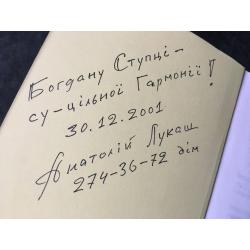 Богдану Ступці -
су-цільної Гармонії!
30.12.2001
Анатолій Лукаш
274-36-72 дім